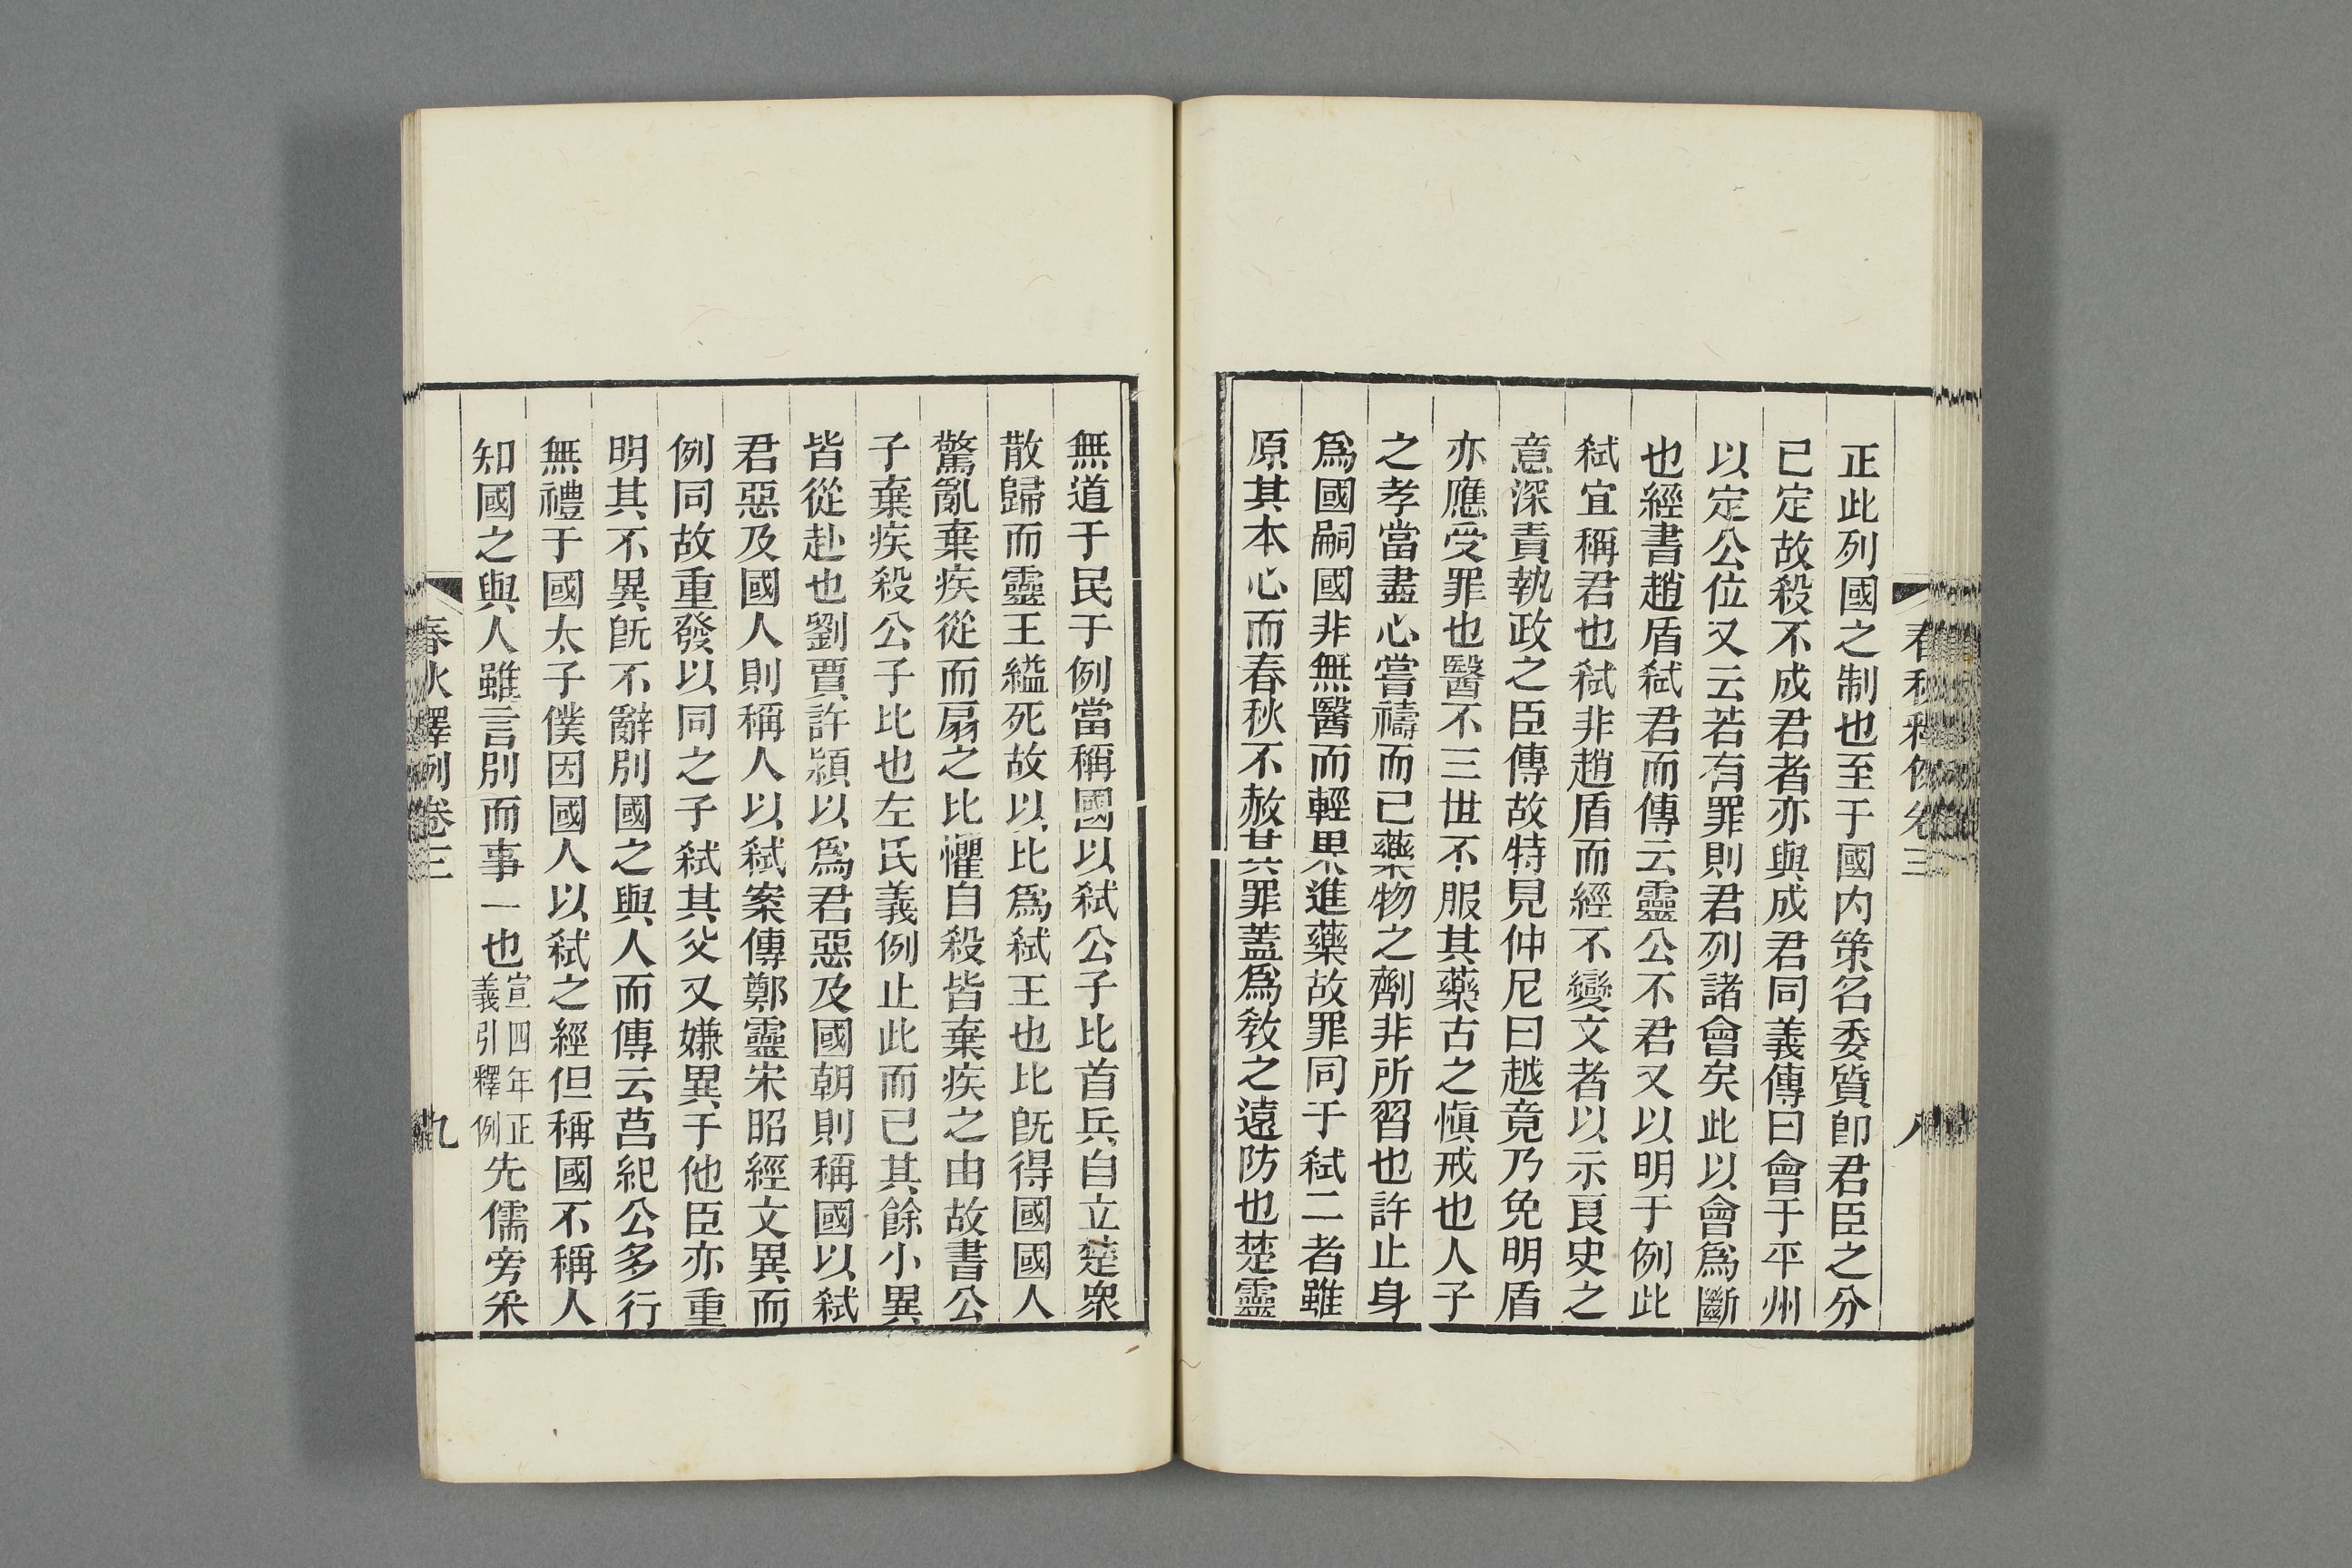 春秋釋例卷三
八
正此列國之制也至于國内策名委質卽君臣之分
已定故殺不成君者亦與成君同義傳曰會于平州
以定公位又云若有罪則君列諸會矣此以會爲斷
也經書趙盾弑君而傳云靈公不君又以明于例此
弑宜稱君也弑非趙盾而經不變文者以示良史之
意深責執政之臣傳故特見仲尼曰越竟乃免明盾
亦應受罪也醫不三世不服其藥古之愼戒也人子
之孝當盡心嘗禱而已藥物之劑非所習也許止身
爲國嗣國非無醫而輕果進藥故罪同于弑二者雖
原其本心而春秋不赦其罪蓋爲教之遠防也楚靈
無道于民于例當稱國以弑公子比首兵自立楚衆
散歸而靈王縊死故以比爲弑王也比旣得國國人
驚亂棄疾從而扇之比懼自殺皆棄疾之由故書公
子棄疾殺公子比也左氏義例止此而已其餘小異
皆從赴也劉賈許潁以爲君惡及國朝則稱國以弑
君惡及國人則稱人以弑案傳鄭靈宋昭經文異而
例同故重發以同之子弑其父又嫌異于他臣亦重
明其不異旣不辭別國之與人而傳云莒紀公多行
無禮于國太子僕因國人以弑之經但稱國不稱人
知國之與人雖言別而事一也宣四年正義引釋例先儒旁采
春秋釋例卷三
九